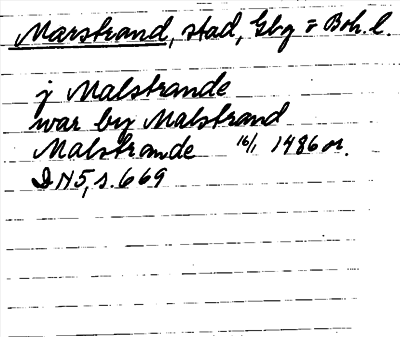 Marstrand, stad, Gbg o Boh. l.
j Malstrande
war by Malstrand
Malstrande 16/1 1486 or.
DN 5, s. 669